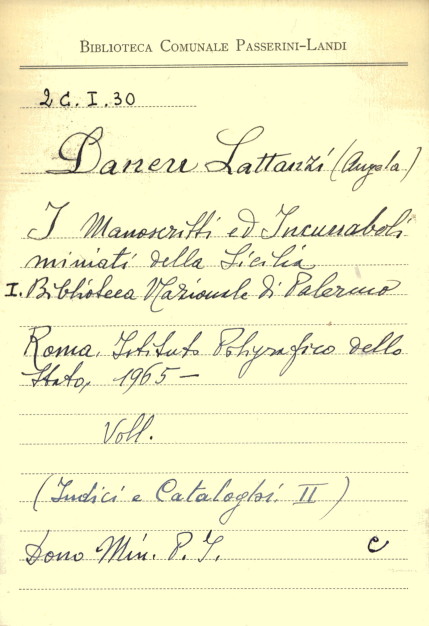 BIBLIOTECA COMUNALE PASSERINI-LANDI
2 C. I. 30
Daneu Lattanzi (Angela)
I Manoscritti ed Incunaboli
miniati della Sicilia
I. Biblioteca Nazionale di Palermo
Roma, Istituto Poligrafico dello
Stato, 1965 —
Voll.
(Indici e Cataloghi II)
Dono Min. P. I. C